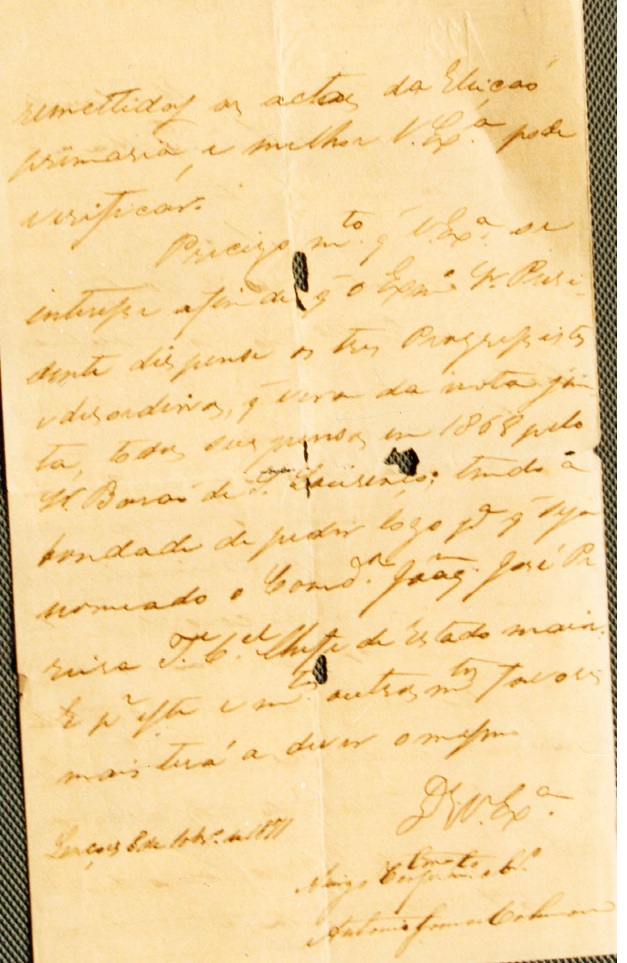 remettidos as actas da Eleicaõ
primaria, e melhor V. Ex.ª pode
verificar.
Precizo m.to q̃ V. Ex.ª se
interesse afim de q̃ o Exm.º Sr. Presi-
dente dispense os tres Progressistas
e desordeiros, q̃ vera da nota jun
ta, todos suspensos em 1868 pelo
Sr. Baraõ de S. Lourenço; tendo a
bondade de pedir logo p.ª q̃ seja
nomeado o Com.or Joaq. José Pe
reira T.e C.el Chefe de Estado maior.
E p.r este e m.tos outros m.tos favores
mais terá a dever o mesmo
De V. Ex.ª
Lençoes 8 de de 1871
Amigo
Antonio Gomes